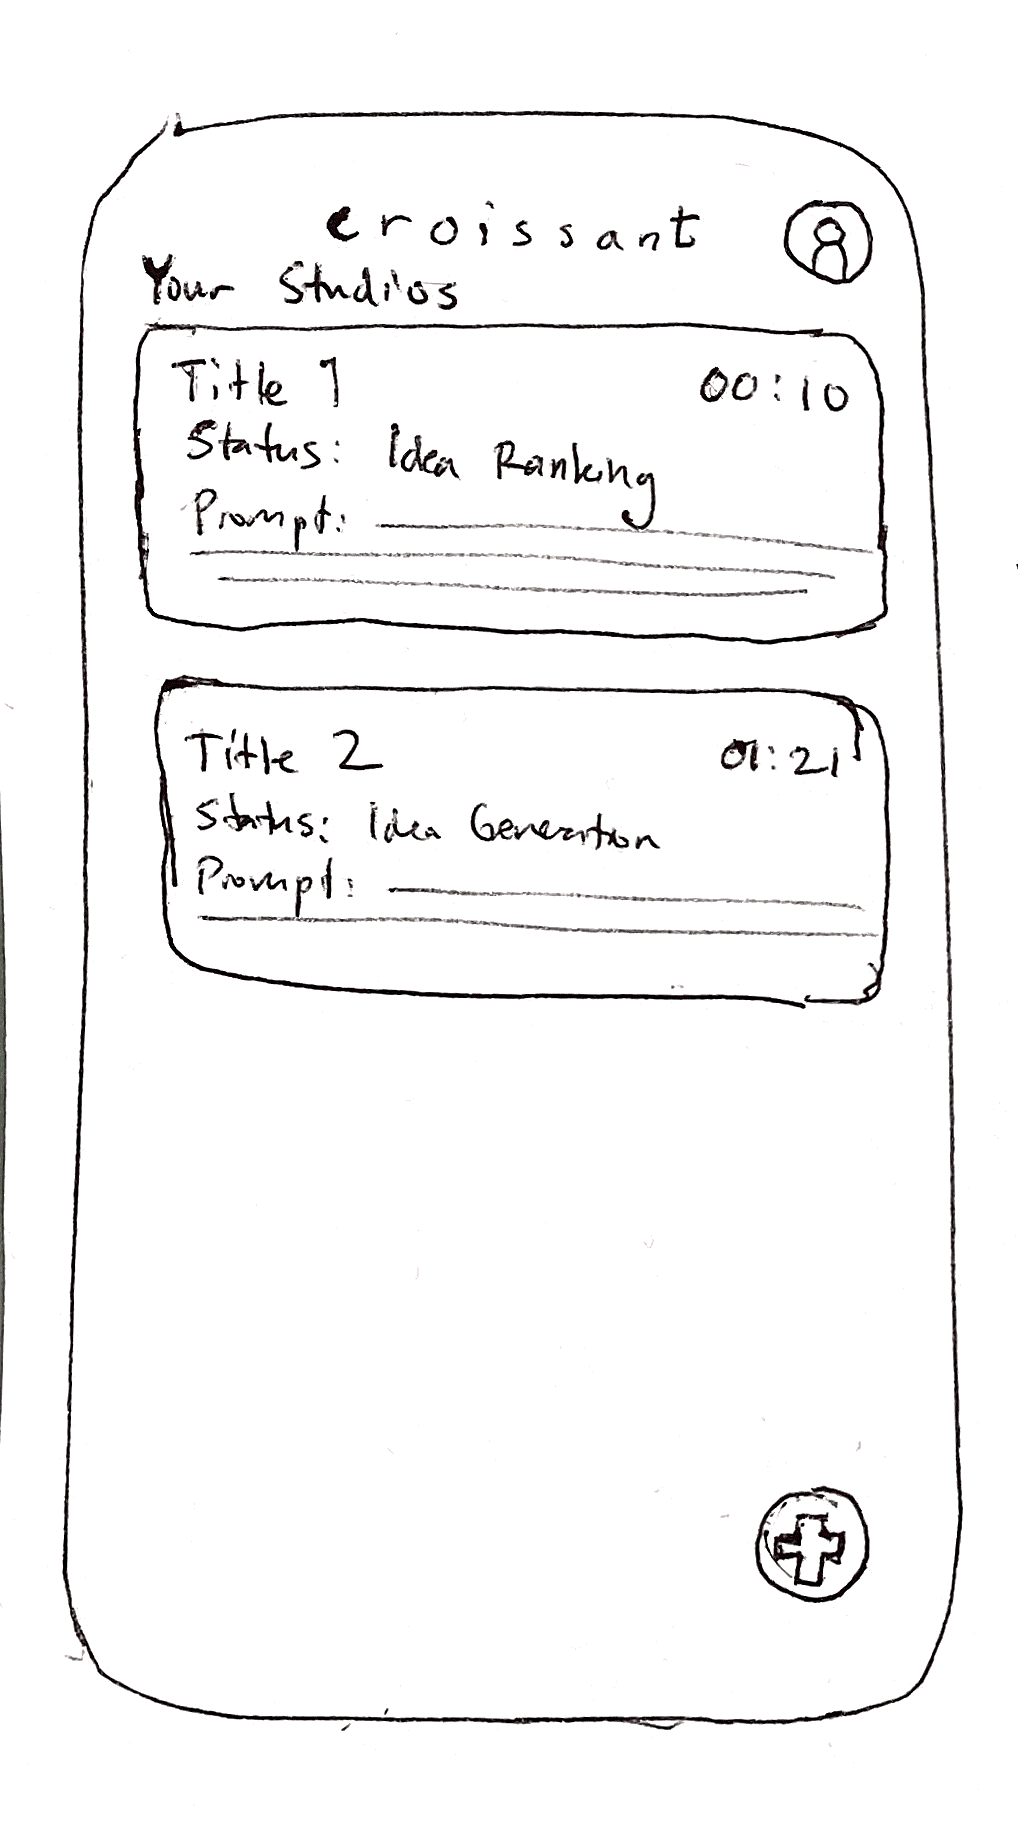 croissant
Your Studios
Title 1 00:10
Status: Idea Ranking
Prompt:
Title 2 01:21
Status: Idea Generation
Prompt: